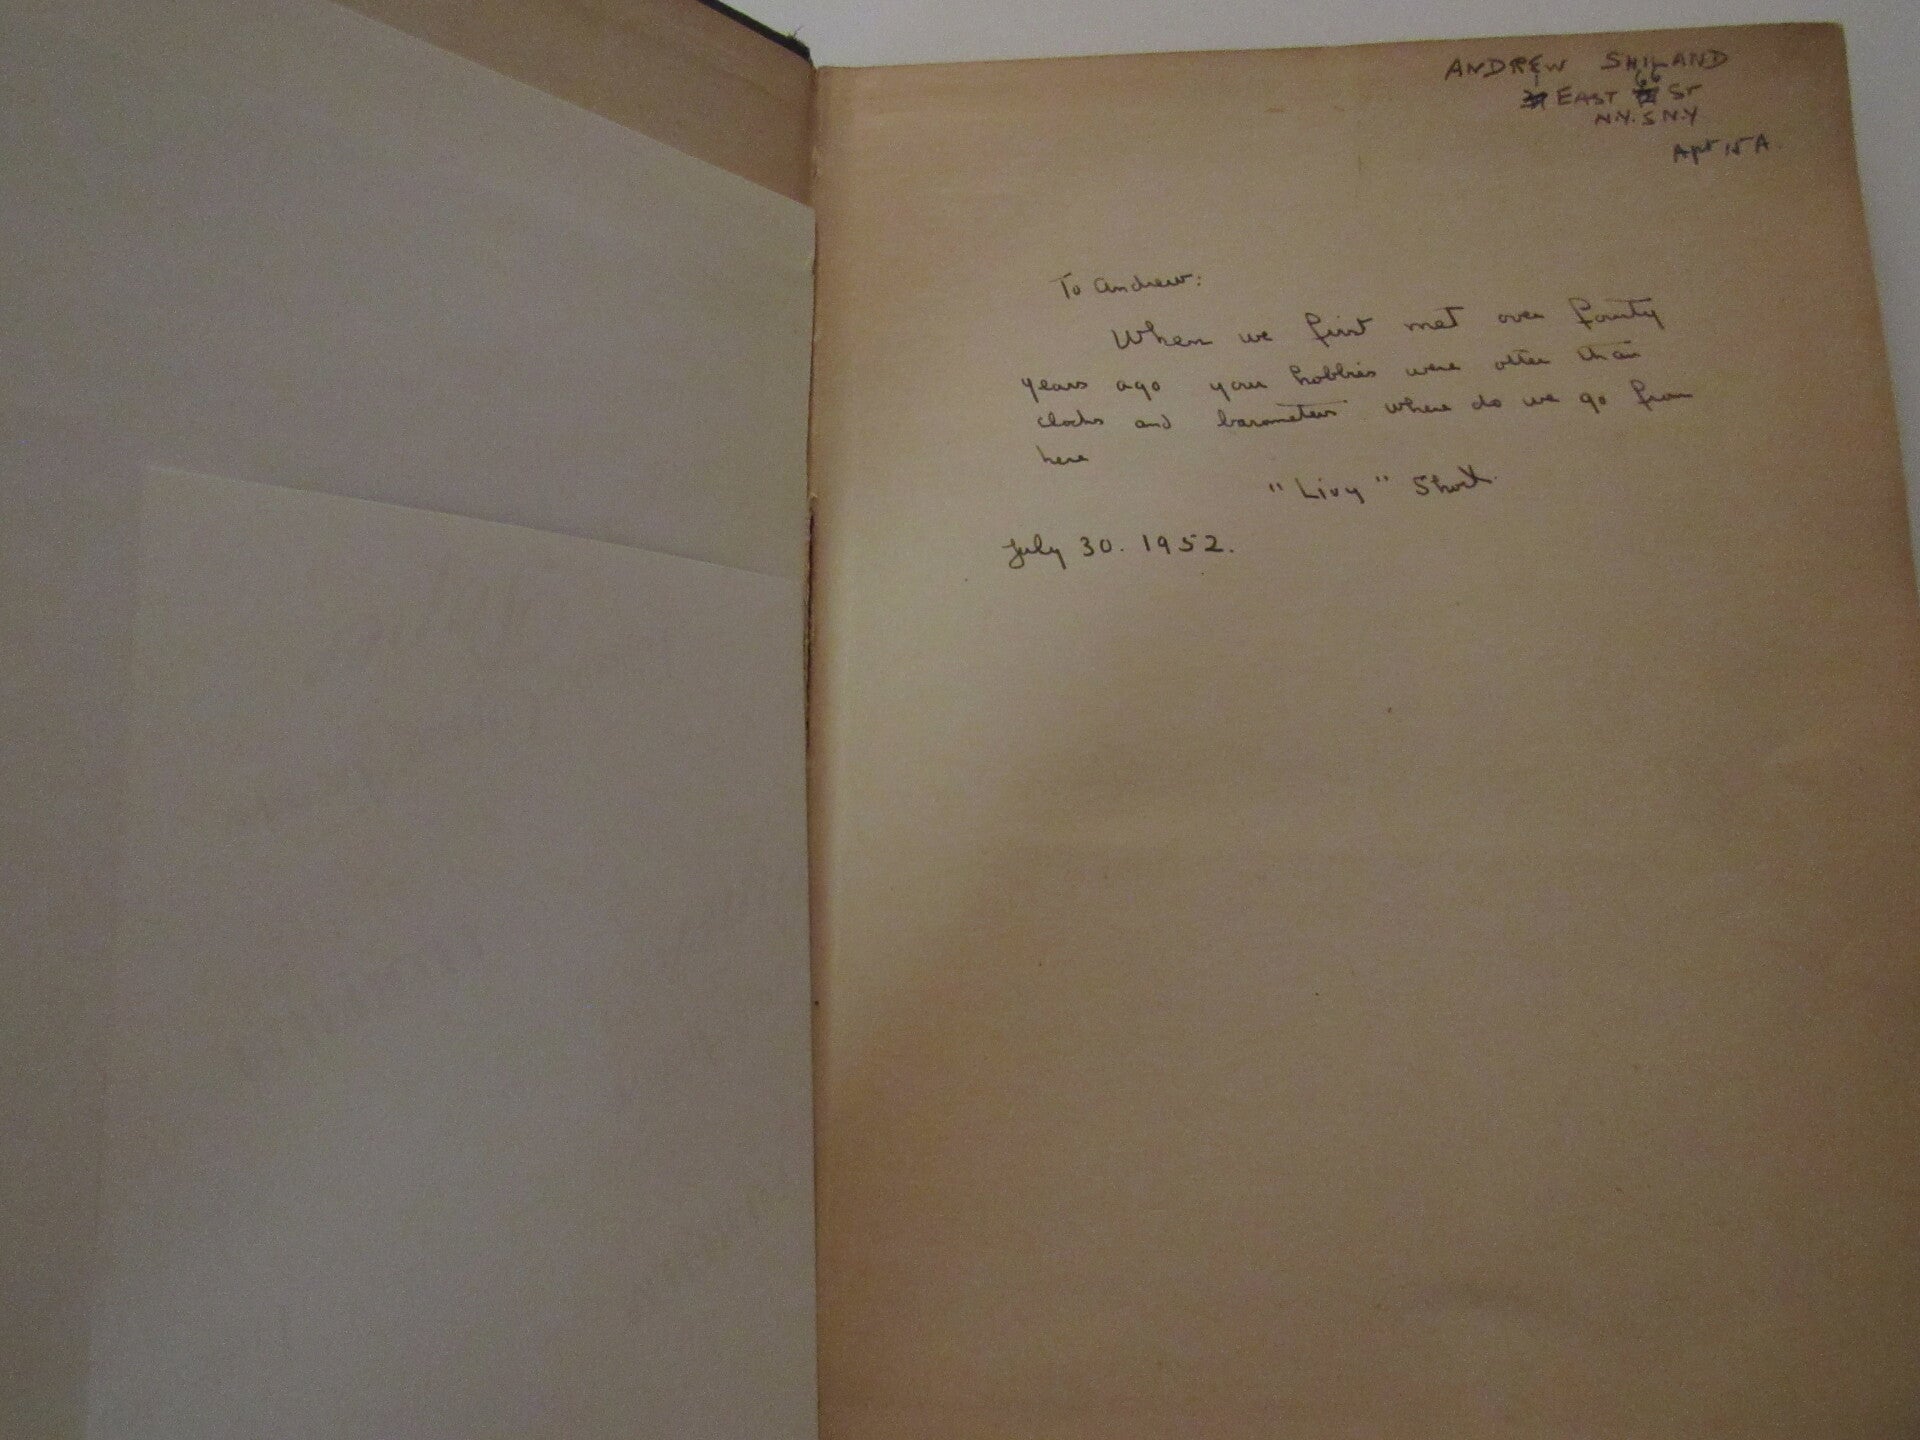 ANDREW SHILAND
1 EAST 66 ST
N.Y. 5 N.Y
Apt 15 A.
To Andrew:
When we first met over fourty
years ago your hobbies were other than
clocks and barometers where do we go from
here
"Livy" Short.
July 30. 1952.